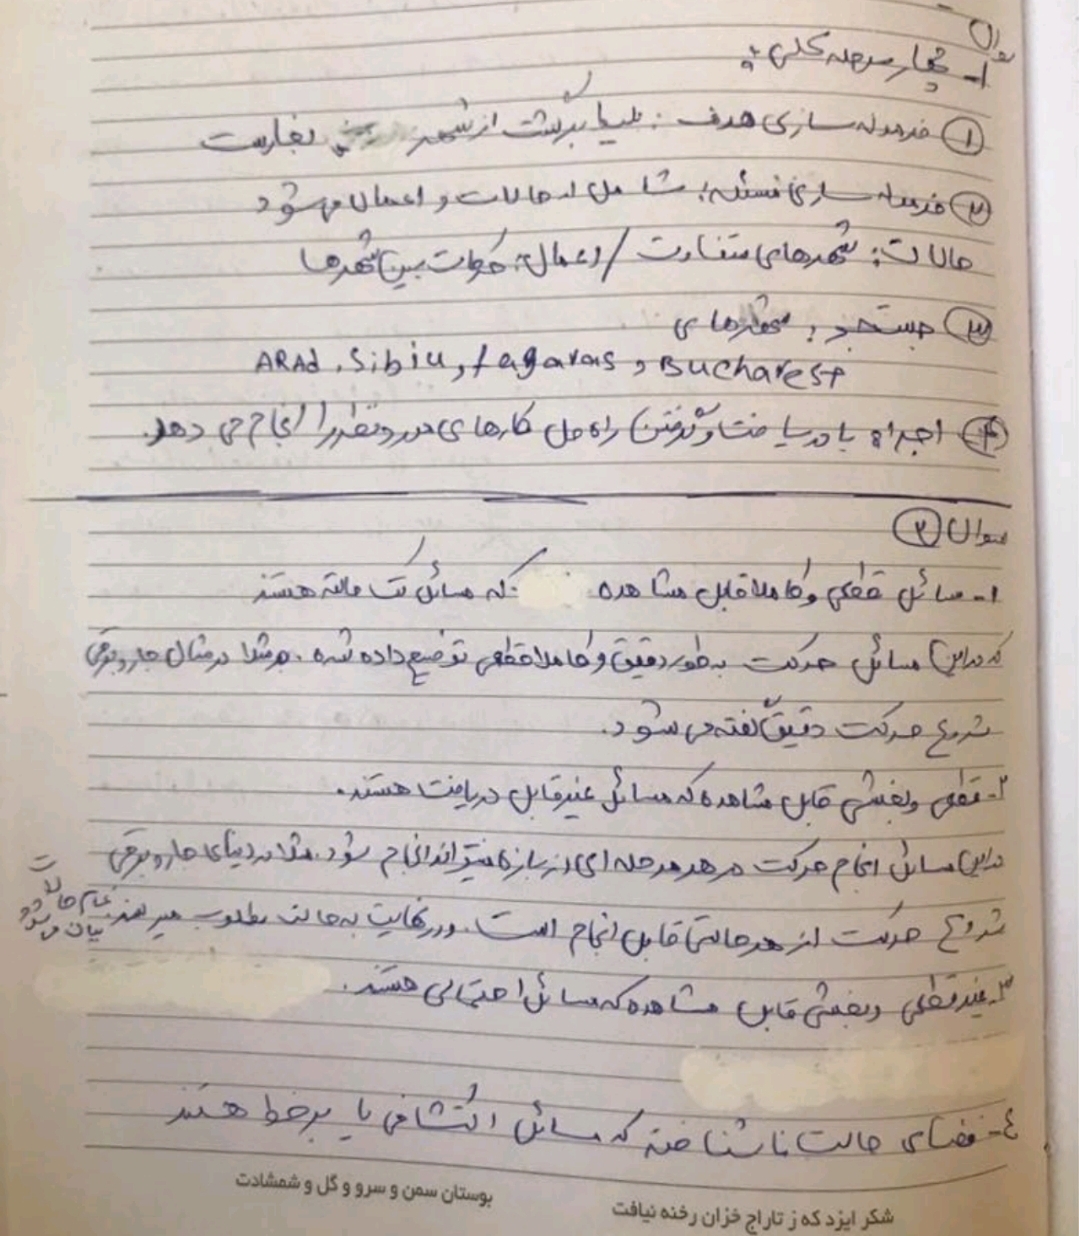 سوال
۱- چهار مرحله کلی:
① فرموله سازی هدف: برگشت از شهر بخارست
② فرموله سازی مسئله: شامل از حالات و اعمال می شود
حالات: شهرهای متفاوت / اعمال: حرکات بین شهرها
③ جستجو: شهرهای
ARAd, Sibiu, fagaras, Bucharest
④ اجرا: با دریافت و گرفتن راه حل کارهای مورد نظر را انجام می دهد.
سوال ②
۱- مسائل قطعی و کاملا قابل مشاهده که مسائل تک حالته هستند
که در این مسائل حرکت به طور دقیق و کاملا قطعی توضیح داده شده. مثلا در مثال جاروبرقی
شروع حرکت دقیقاً گفته می شود.
۲- قطعی و بخشی قابل مشاهده که مسائل غیرقابل دریافت هستند.
در این مسائل انجام حرکت در هر مرحله ای از بازه میتواند انجام شود. مثلا در دنیای جاروبرقی
شروع حرکت از هر حالتی قابل انجام است. و در نهایت به حالت مطلوب میرسند. تمام حالات بیان می شود
۳- غیرقطعی و بخشی قابل مشاهده که مسائل احتمالی هستند.
٤- فضای حالت ناشناخته که مسائل اکتشافی یا برخط هستند
بوستان سمن و سرو و گل و شمشادت
شکر ایزد که ز تاراج خزان رخنه نیافت